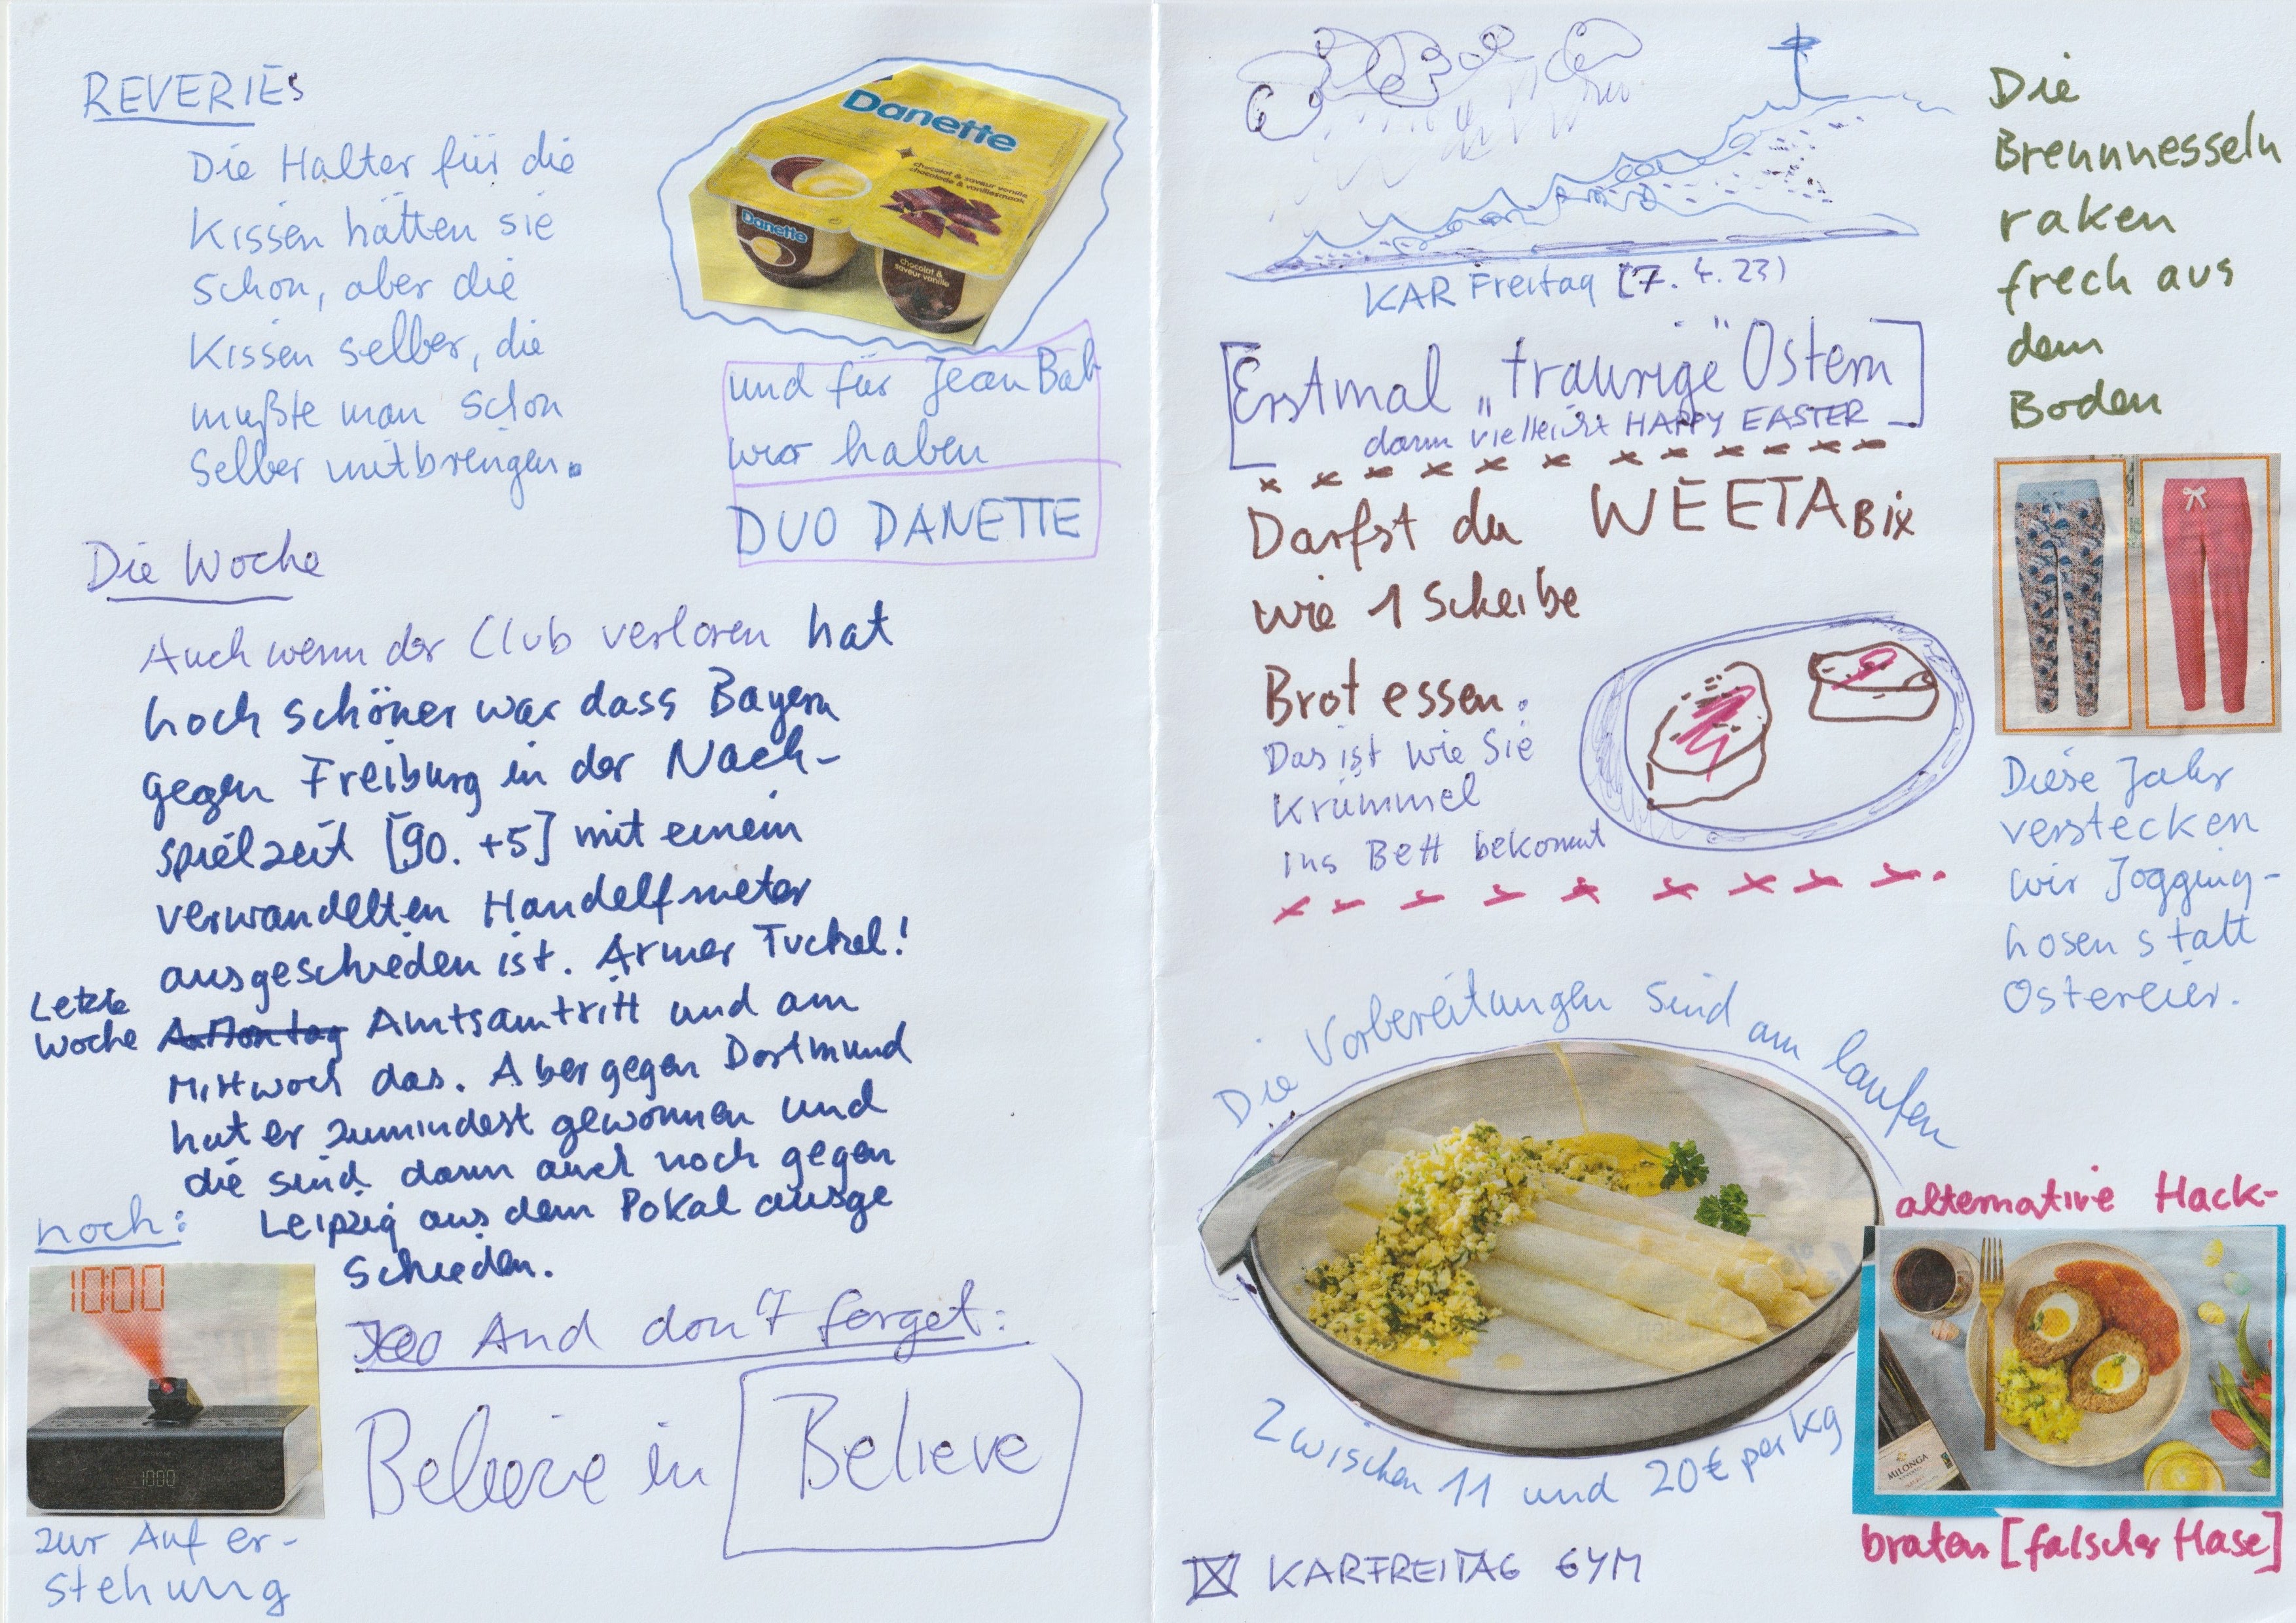 REVERIES
Die Halter für die
Kissen hätten sie
schon, aber die
Kissen selber, die
mußte man schon
selber mitbringen.
Danette
chocolat & saveur vanille
chocolade & vanillesmaak
Danette
chocolat &
saveur vanille
und für Jean Bab
wir haben
DUO DANETTE
Die Woche
Auch wenn der Club verloren hat
noch schöner war dass Bayern
gegen Freiburg in der Nach-
spielzeit [90. +5] mit einem
verwandelten Handelfmeter
ausgeschieden ist. Armer Tuchel!
Letzte
Woche Amtsantritt und am
Mittwoch das. Aber gegen Dortmund
hat er zumindest gewonnen und
die sind dann auch noch gegen
Leipzig aus dem Pokal ausge
schieden.
noch:
10:00
1000
zur Aufer-
stehung
And don't forget:
Believe in Believe
KARFreitag (7. 4. 23)
[Erstmal „traurige" Ostern]
dann vielleicht HAPPY EASTER
Darfst du WEETABix
wie 1 Scheibe
Brot essen.
Das ist wie Sie
Krümmel
ins Bett bekommt
Die Vorbereitungen sind am laufen
Zwischen 11 und 20€ per kg
KARFREITAG GYM
Die
Brennnesseln
raken
frech aus
dem
Boden
Diese Jahr
verstecken
wir Jogging-
hosen statt
Ostereier.
alternative Hack-
MILONGA
braten [falscher Hase]